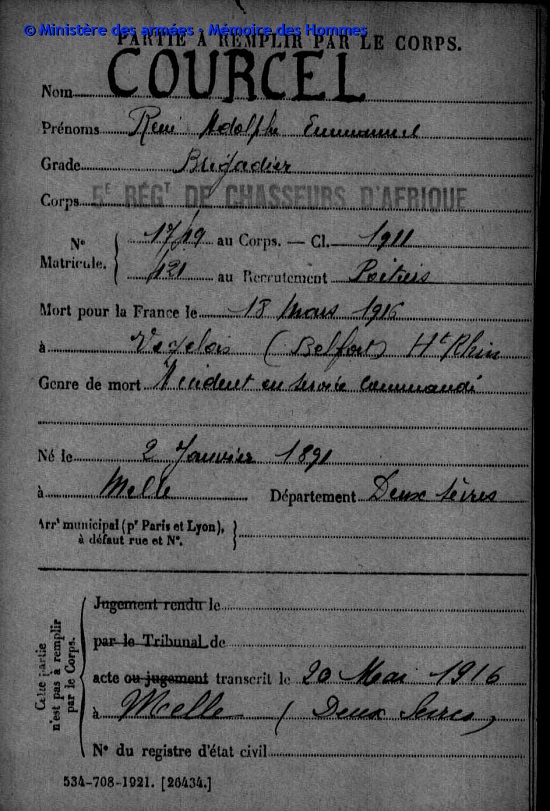 © Ministère des armées - Mémoire des Hommes
PARTIE À REMPLIR PAR LE CORPS.
Nom COURCEL
Prénoms René Adolphe Emmanuel
Grade Brigadier
Corps 5E RÉGT DE CHASSEURS D'AFRIQUE
N° Matricule. { 1719 au Corps. — Cl. 1911
121 au Recrutement Poitiers
Mort pour la France le 18 Mars 1916
à (Belfort) Ht Rhin
Genre de mort Accident en service commandé
Né le 2 Janvier 1891
à Melle Département Deux Sèvres
Arrt municipal (pr Paris et Lyon), à défaut rue et N°. }
Cette partie n'est pas à remplir par le Corps. {
Jugement rendu le
par le Tribunal de
acte ou jugement transcrit le 20 Mai 1916
à Melle (Deux Sèvres)
N° du registre d'état civil
534-708-1921. [26434.]